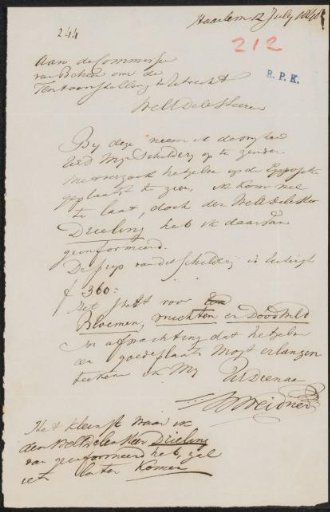 244
Haarlem 12 July 1840
212
R.P.K.
Aan de Commissie
van Beheer over de
Tentoonstelling te Utrecht
WelEdele Heeren
By deze neem ik de
UEd Myn Schildery op te zenden
met verzoek hetzelve op de Exposit
geplaatst te zien, ik kom
te laat, doch den WelEdele Heer
Drieling heb ik daarvan
geinformeerd.
De prys van de schildery is
f 360:
Het stelt voor Een
Bloemen, vruchten en Dood Wild
In afwachting dat hetzelve
een goede plaats Mogt erlangen
teeken ik My
UE Dienaar
Weidner
Het kleinste waar ik
den WelEdelen Heer Drieling
van geinformeerd heb, zal
iets later Komen